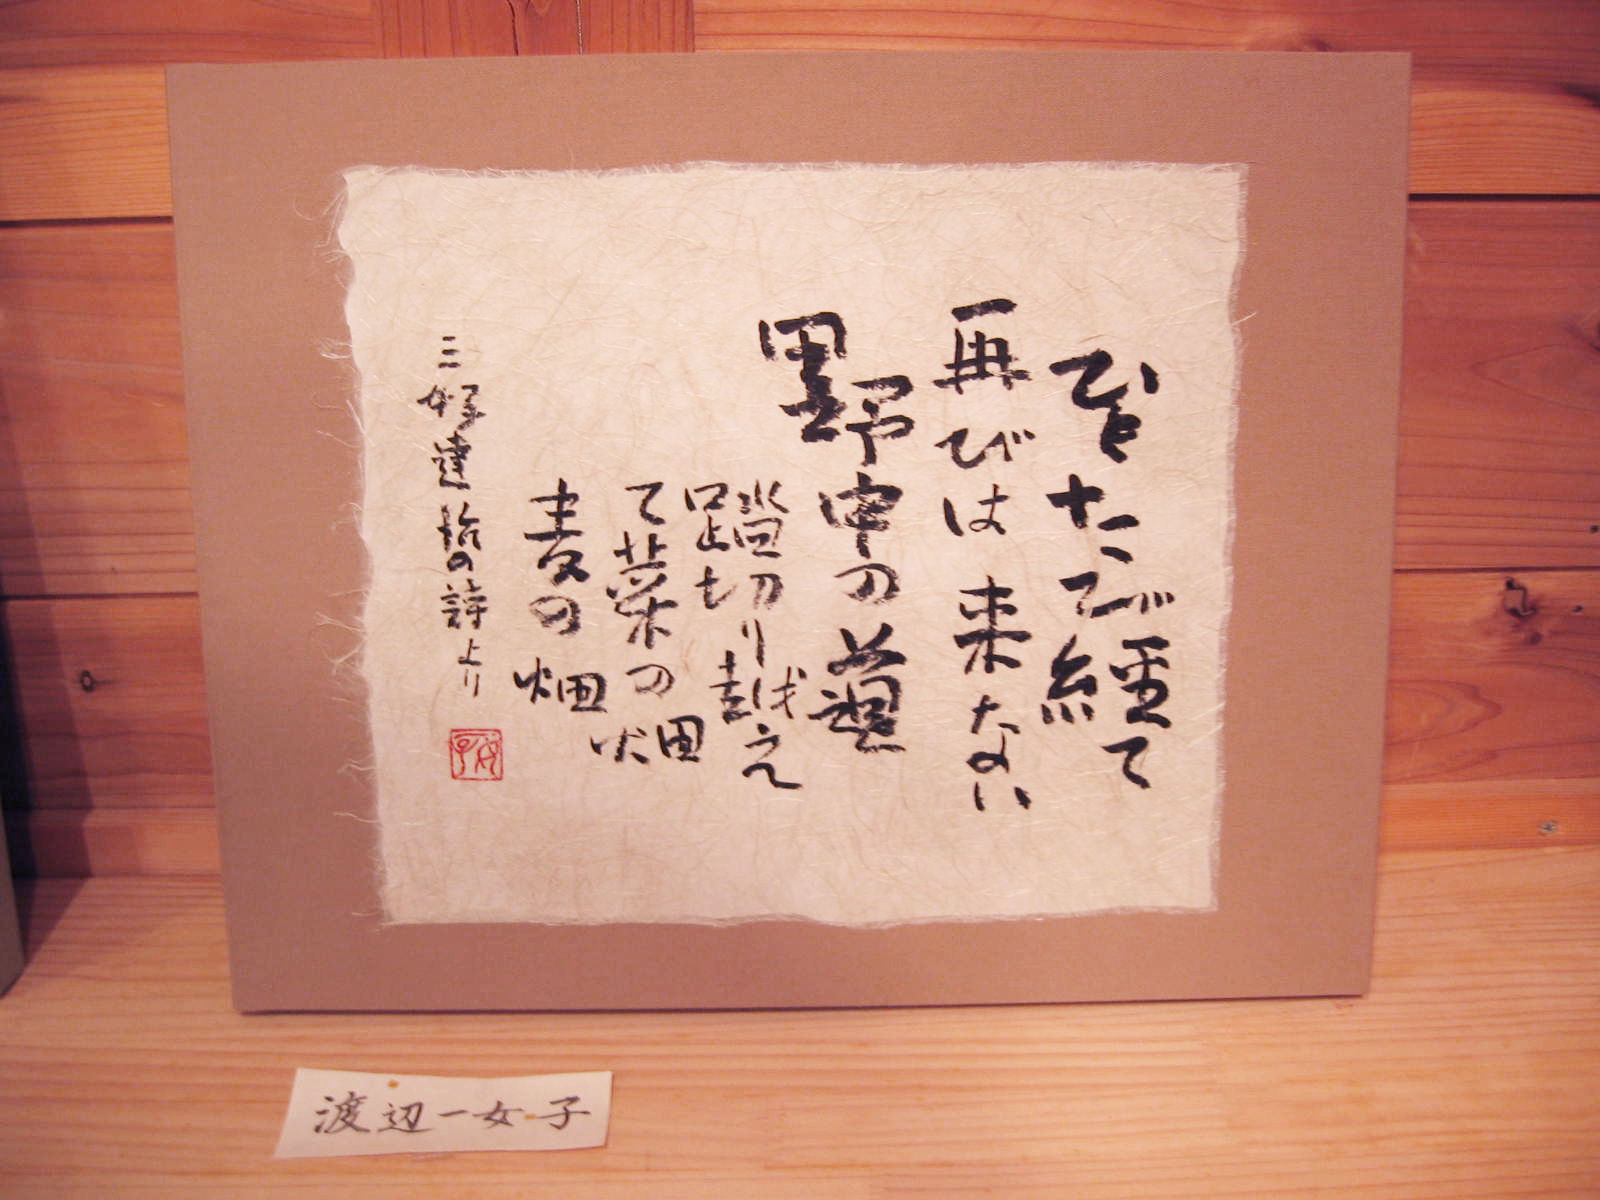 ひとたび経て
再びは来ない
野中の道
踏切り越え
て菜の畑
麦の畑
三好達治の詩より
女子
渡辺一女子